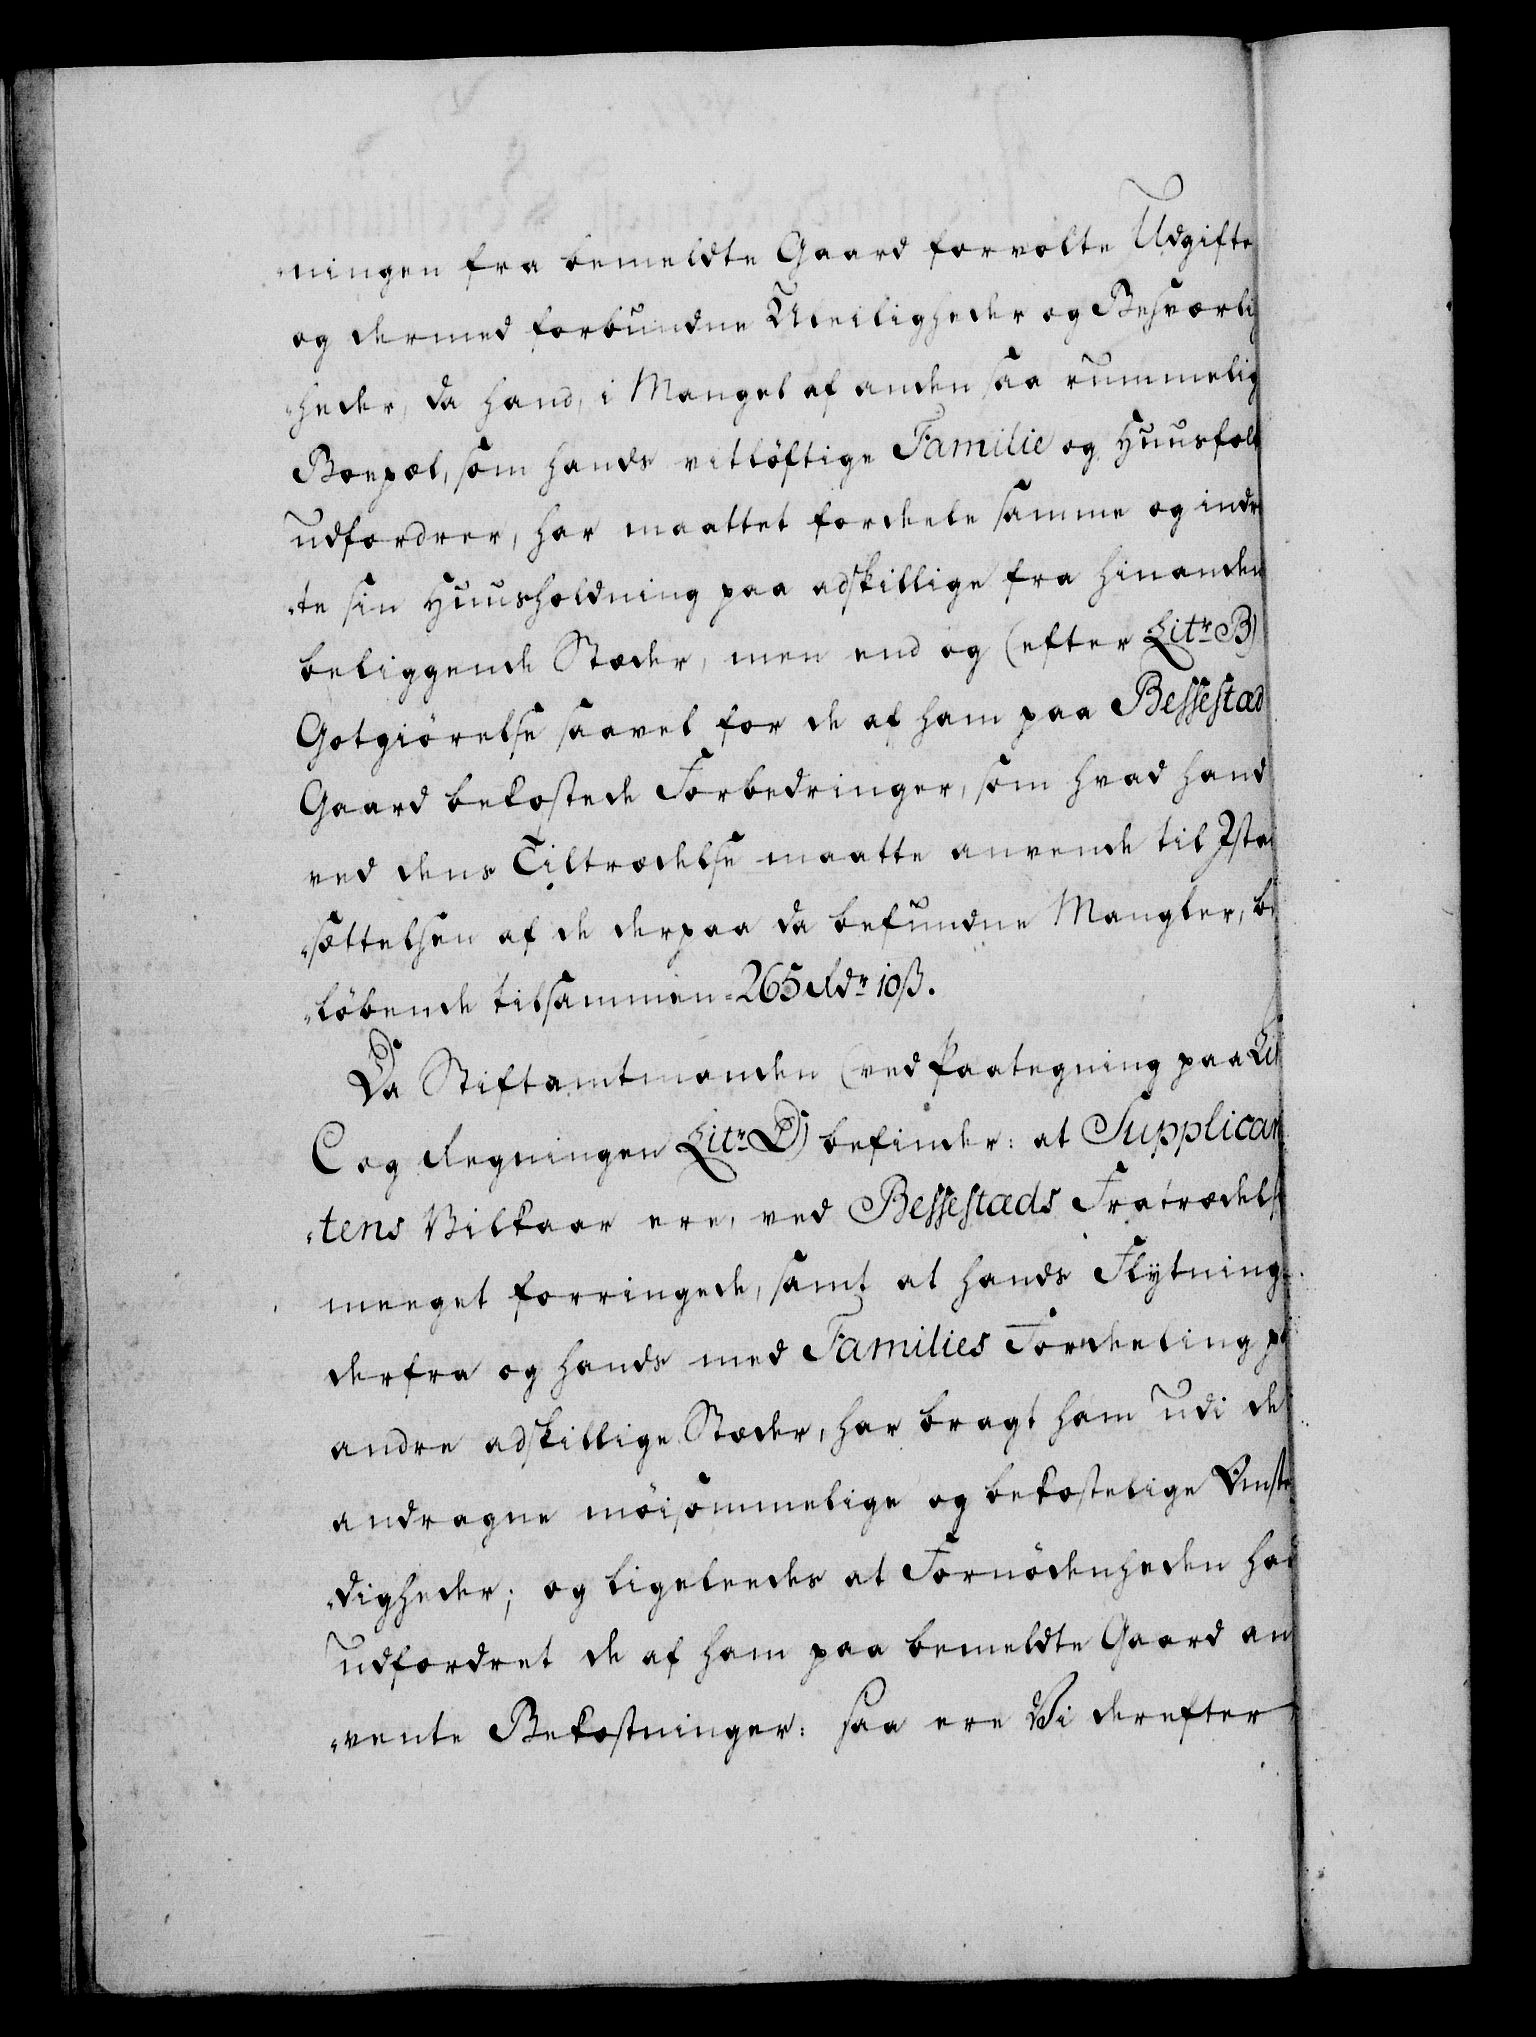 ningen fra bemeldte Gaard forvolte Udgifte
og dermed forbundne Uleiligheder og Besværlig
heder, da hand, i Mangel af anden saa rummelig
Boepæl, som hands vitløftige Familie og Huusfolk
udfordrer, har maattet fordeele samme og indr
te sin Huusholdning paa adskillige fra hinanden
beliggende Stæder, men end og (efter Litr B)
Gotgiørelse saavel for de af ham paa Bessestad
Gaard bekostede Forbedringer, som hvad hand
ved dens Tiltrædelse maatte anvende til Ista
sættelsen af de derpaa da befundne Mangler, be
løbende tilsammen 265 Rdr 10 ß.
Da Stiftamtmanden (ved Paategning paa Lit
C og Regningen Litr D) befinder: at Supplican
tens Vilkaar ere, ved Bessestæds Fratrædels
meeget forringede, samt at hands Flytning
derfra og hands med Families Fordeeling pa
andre adskillige Stæder, har bragt ham udi de
andragne møisommelige og bekostelige Omstæ
digheder; og ligeleedes at Fornødenheden had
udfordret de af ham paa bemeldte Gaard an
vente Bekostninger: saa ere Vi derefter